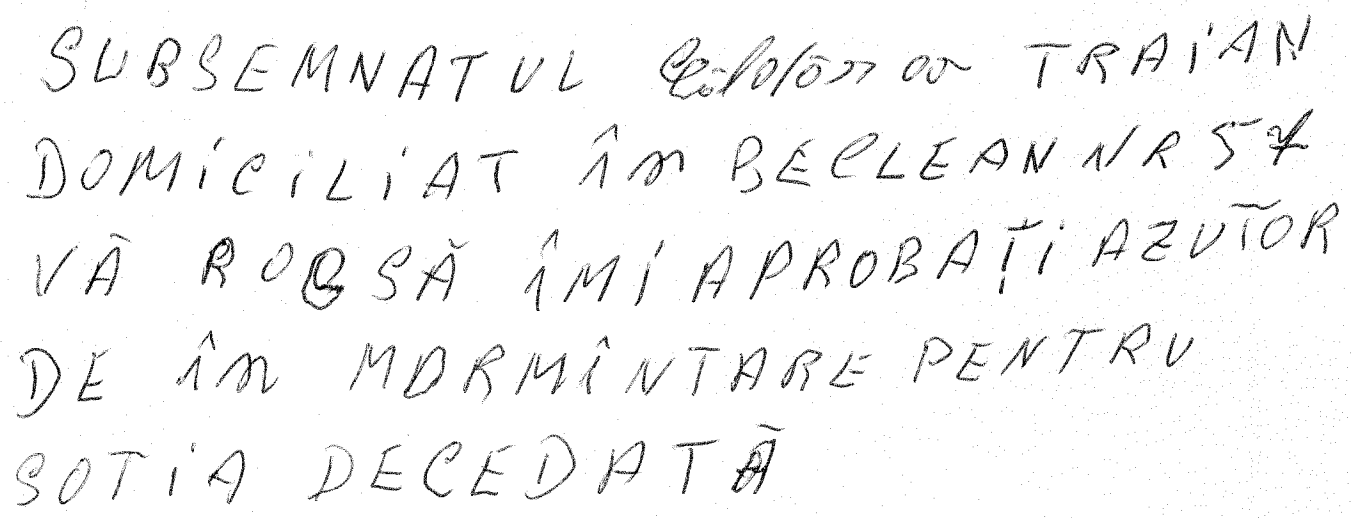 SUBSEMNATUL TRAIAN
DOMICILIAT în BECLEAN NR 57
VĂ ROG SĂ ÎMI APROBAȚI AZUTOR
DE în MORMÎNTARE PENTRU
SOTIA DECEDATĂ